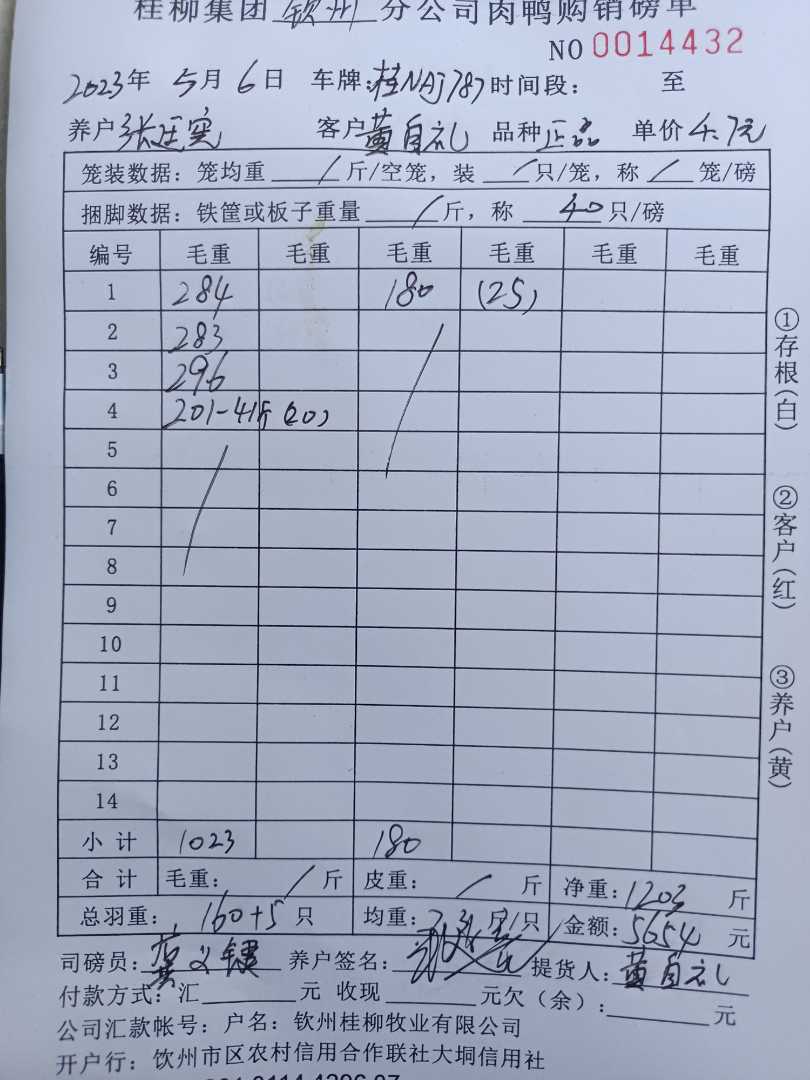 桂柳集团 钦州 分公司肉鸭购销磅单
NO 0014432
2023年 5月 6日 车牌:桂NAJ787 时间段: 至
养户 张廷宪 客户 黄自礼 品种 正品 单价 4.7元
笼装数据: 笼均重 / 斤/空笼, 装 / 只/笼, 称 / 笼/磅
捆脚数据: 铁筐或板子重量 / 斤, 称 40 只/磅
编号 毛重 毛重 毛重 毛重 毛重 毛重
1 284 180 (25)
2 283
3 296
4 201-41斤(20)
5
6
7
8
9
10
11
12
13
14
小计 1023 180
合计 毛重: / 斤 皮重: / 斤 净重: 1203 斤
总羽重: 160+5 只 均重: 斤/只 金额: 5654 元
司磅员: 养户签名: 提货人: 黄自礼
付款方式: 汇 元 收现 元欠(余): 元
公司汇款帐号: 户名: 钦州桂柳牧业有限公司
开户行: 钦州市区农村信用合作联社大垌信用社
①存根(白)
②客户(红)
③养户(黄)